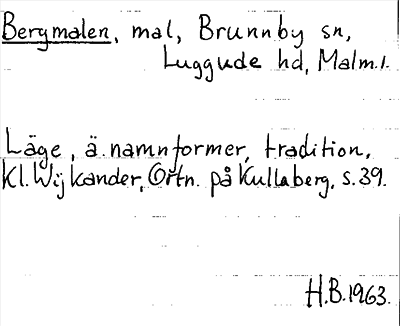 Bergmalen, mal, Brunnby sn,
Luggude hd, Malm.l.
Läge, ä. namnformer, tradition,
Kl. Wijkander, Ortn. på Kullaberg, s. 39.
H.B. 1963.